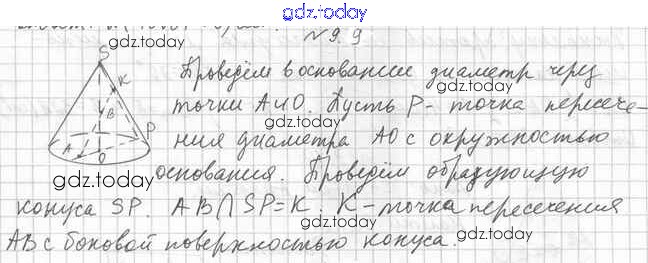 gdz.today
№ 9.9
gdz.today
Проведём в основании диаметр через
точки А и О. Пусть Р - точка пересече-
ния диаметра АО с окружностью
основания. Проведём образующую
конуса SP. AB ∩ SP = K. K - точка пересечения
АВ с боковой поверхностью конуса.
S
K
B
A
O
P
gdz.today
gdz.today
gdz.today
gdz.today
gdz.today
gdz.today